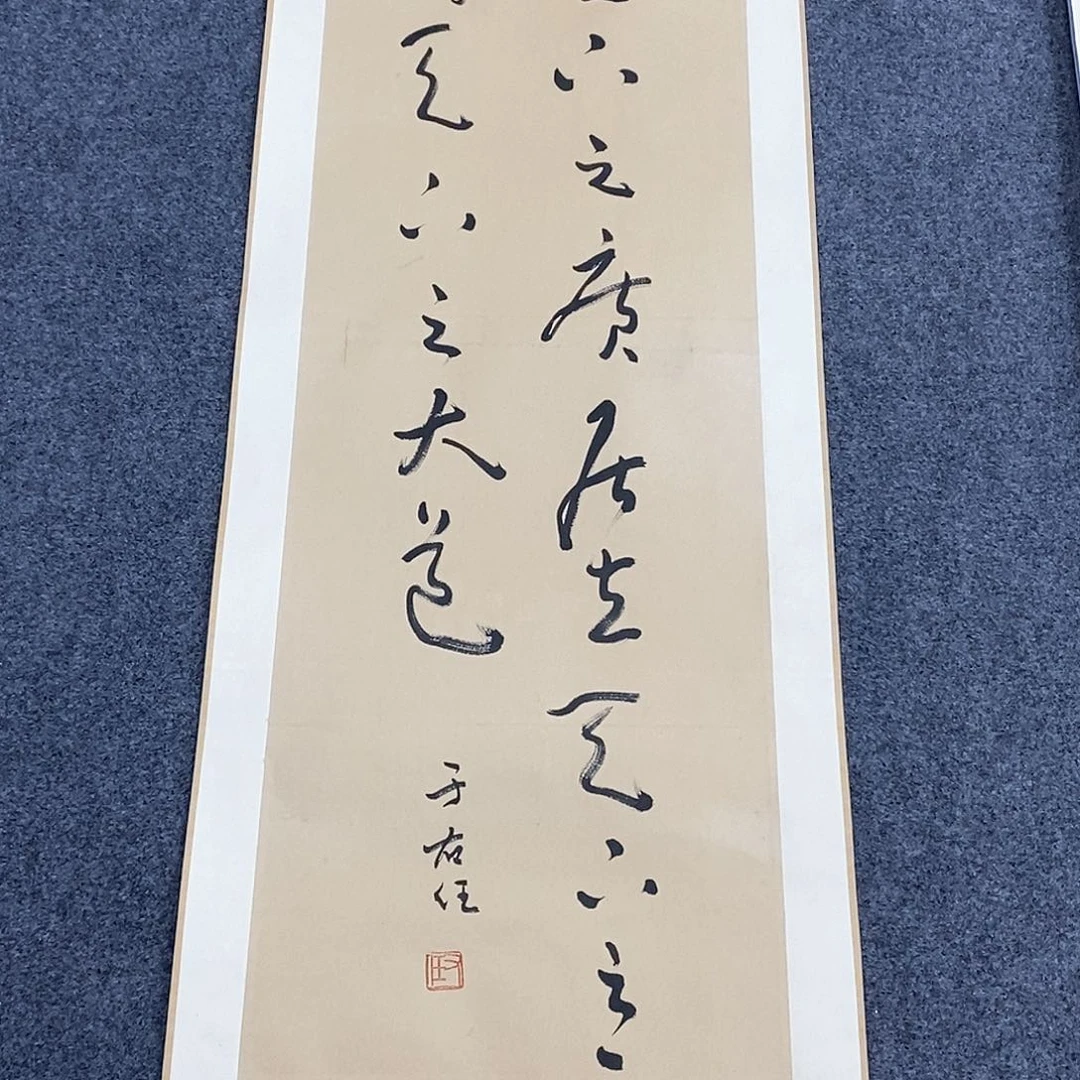 下之廣居立天下之
天下之大道
于右任